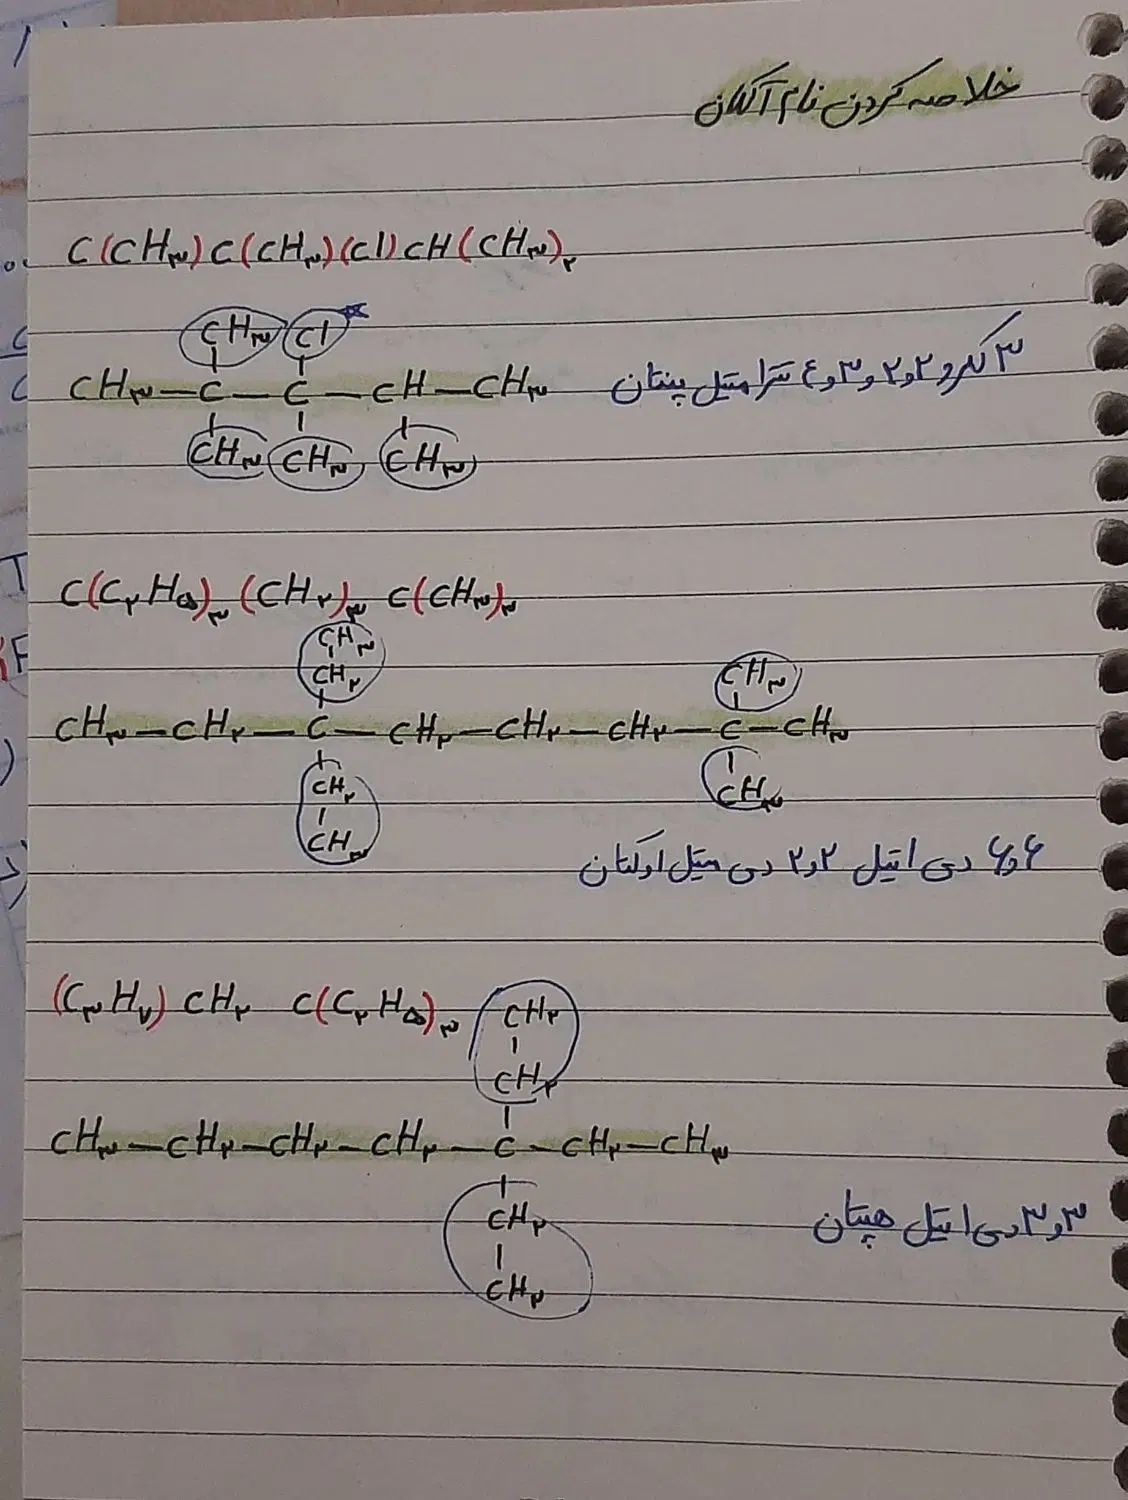 خلاصه کردن نام آلکان
C(CH۳)C(CH۳)(Cl)CH(CH۳)۲
CH۳ Cl
CH۳—C—C—CH—CH۳
۳ کلرو ۲و۲و۳و۴ تترا متیل پنتان
CH۳ CH۳ CH۳
C(C۲H۵)۳(CH۲)۳ C(CH۳)۳
CH۳
CH۲ CH۳
CH۳—CH۲—C—CH۲—CH۲—CH۲—C—CH۳
CH۲ CH۳
CH۳
۶و۶ دی اتیل ۲و۲ دی متیل اوکتان
(C۳H۷) CH۲ C(C۲H۵)۳
CH۳
CH۲
CH۳—CH۲—CH۲—CH۲—C—CH۲—CH۳
CH۲
۳و۳ دی اتیل هپتان
CH۳